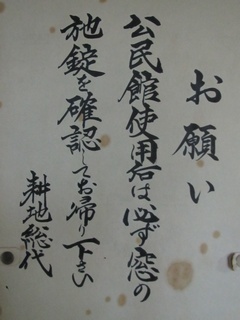 お願い
公民館使用者は必ず窓の
施錠を確認してお帰り下さい
耕地総代